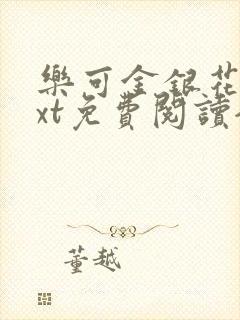 樂可金銀花
xt免費閱讀
董越